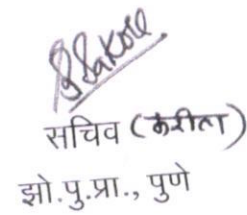 सचिव (करीता)
झो.पु.प्रा., पुणे